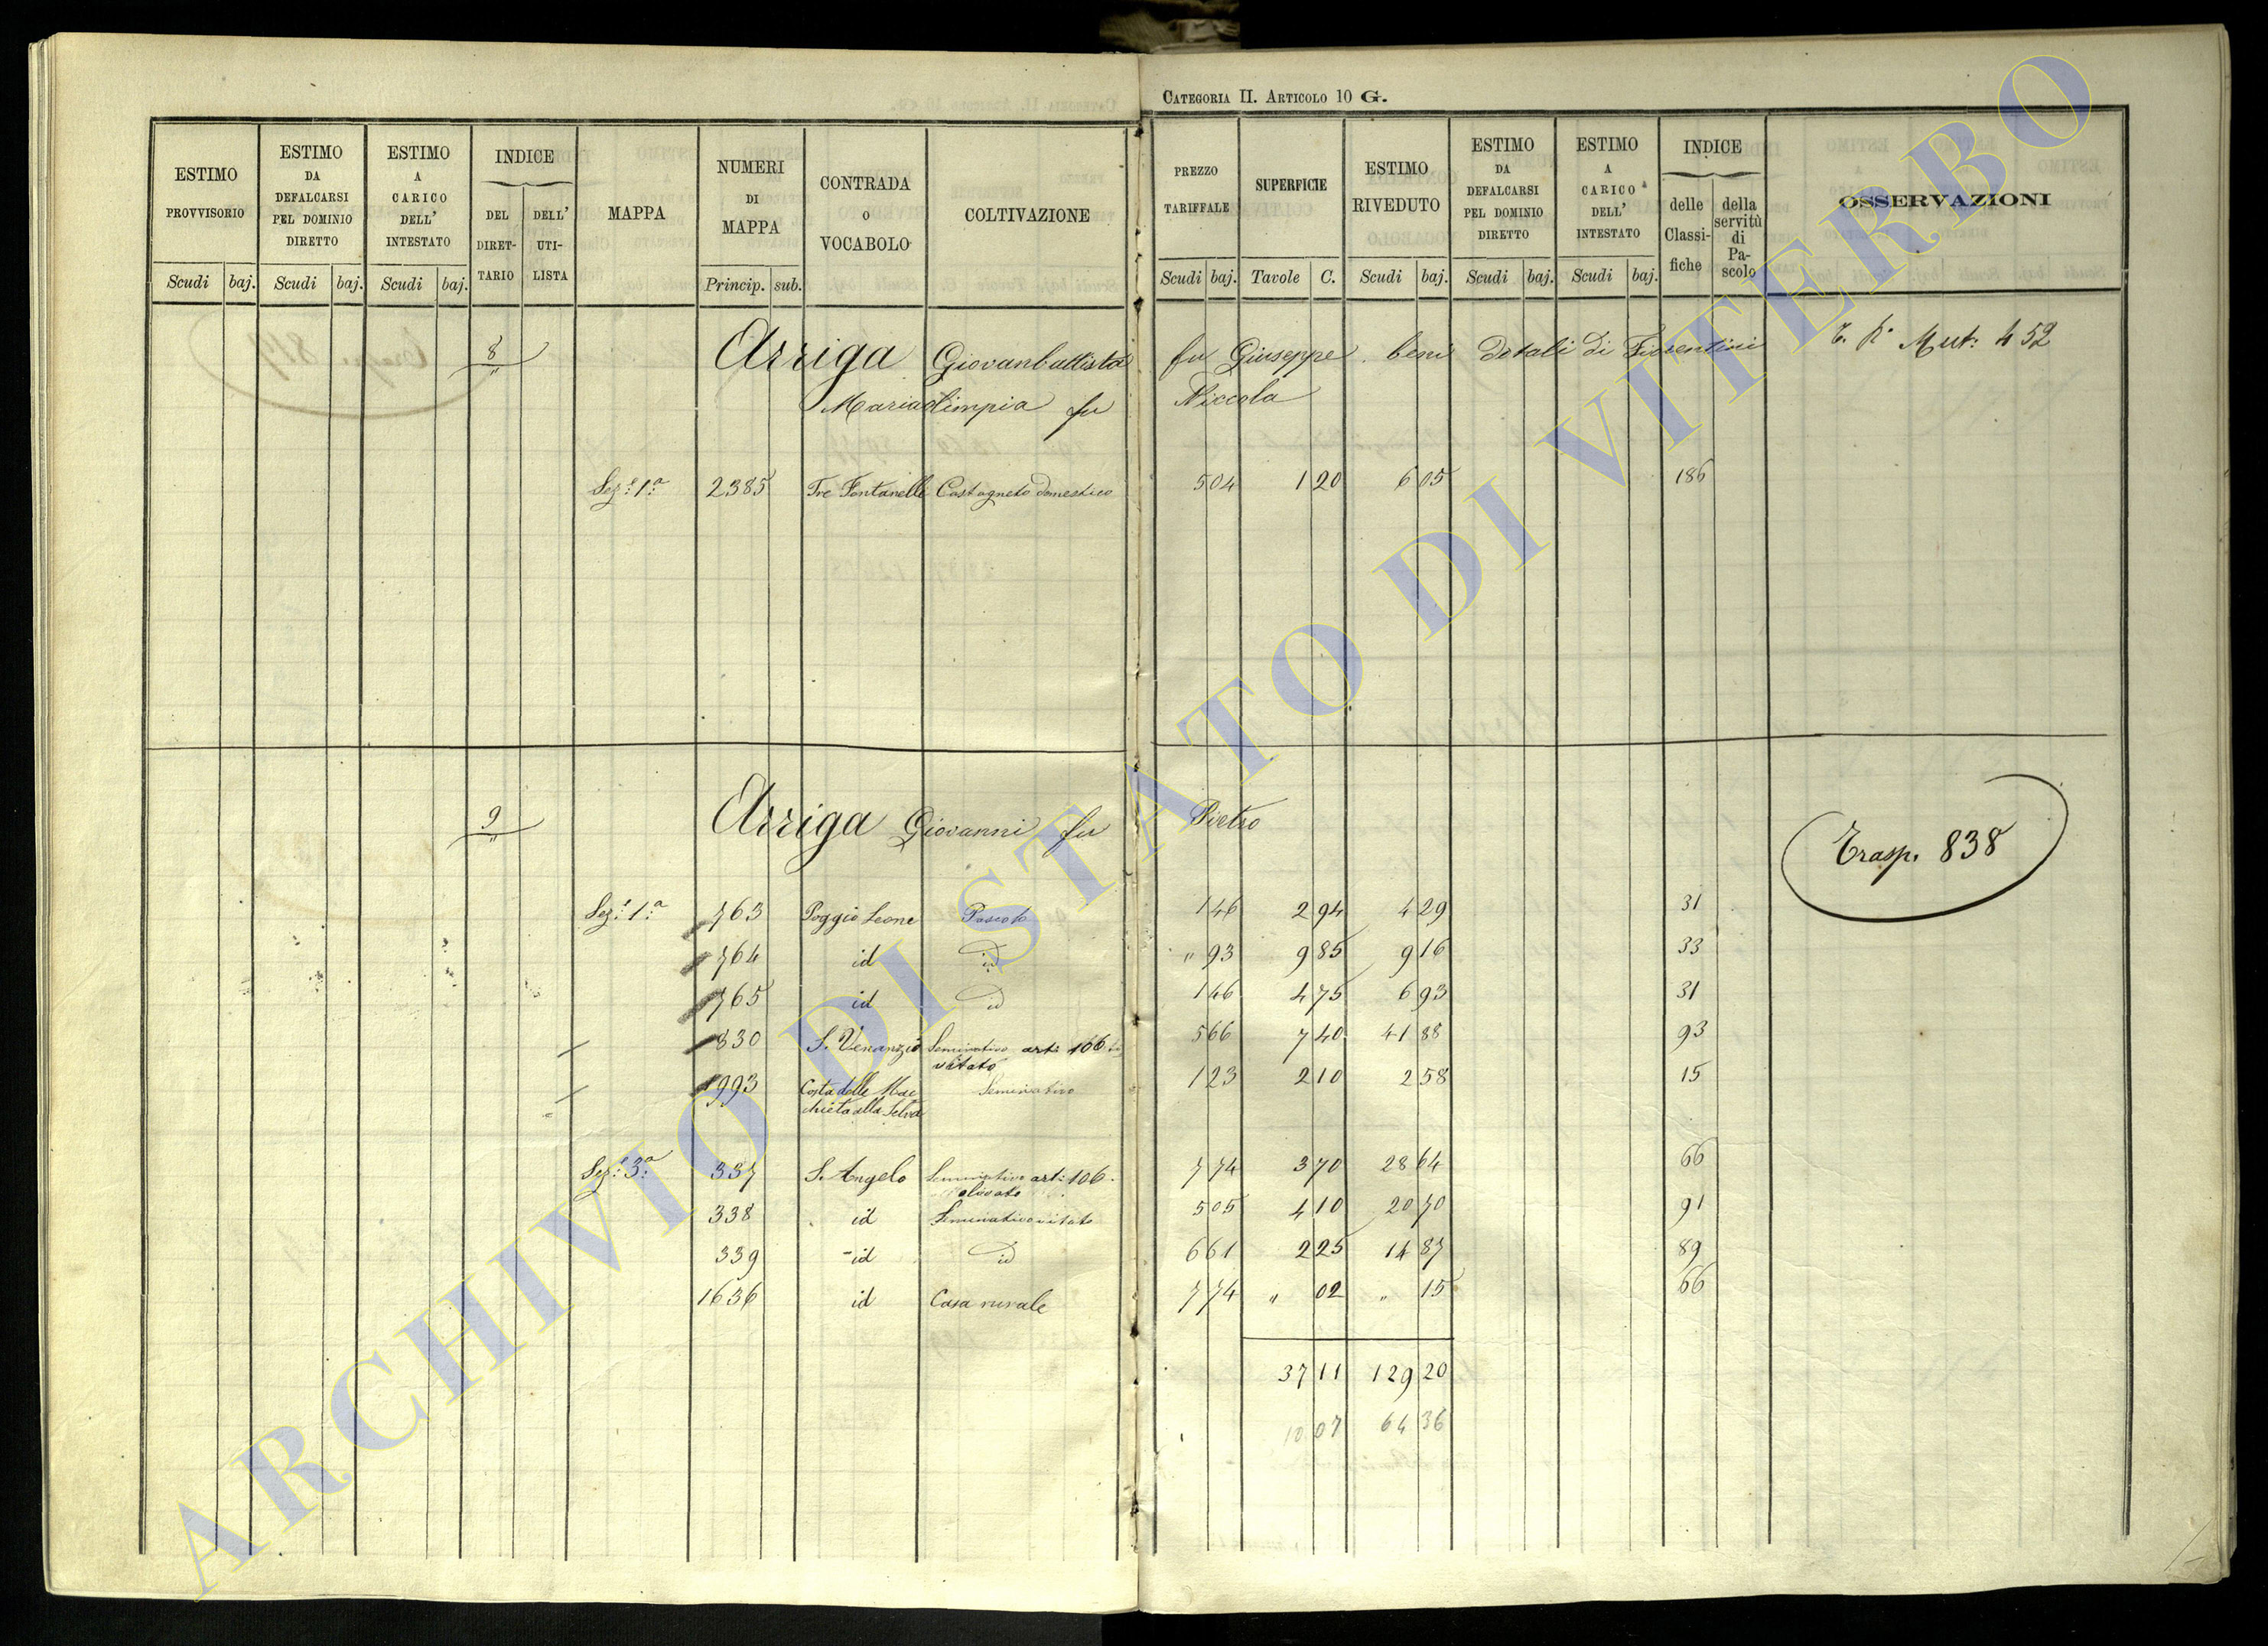 CATEGORIA II. ARTICOLO 10 G.
ESTIMO PROVVISORIO Scudi baj.
ESTIMO DA DEFALCARSI PEL DOMINIO DIRETTO Scudi baj.
ESTIMO A CARICO DELL' INTESTATO Scudi baj.
INDICE DEL DIRET-TARIO DELL' UTI-LISTA
MAPPA
NUMERI DI MAPPA Princip. sub.
CONTRADA O VOCABOLO
COLTIVAZIONE
PREZZO TARIFFALE Scudi baj.
SUPERFICIE Tavole C.
ESTIMO RIVEDUTO Scudi baj.
ESTIMO DA DEFALCARSI PEL DOMINIO DIRETTO Scudi baj.
ESTIMO A CARICO DELL' INTESTATO Scudi baj.
INDICE delle Classi-fiche della servitù di Pa-scolo
OSSERVAZIONI
8 Arriga Giovanbattista fu Giuseppe beni dotali di Fiorentini Mut: 452
Mariaolimpia fu Niccola
Sez: 1a 2385 Tre Fontanelle Castagneto domestico 5 04 1 20 6 05 186
9 Arriga Giovanni fu Pietro
Trasp. 838
Sez: 1a 763 Poggio Leone Pascolo 1 46 2 94 4 29 31
764 id id " 93 9 85 9 16 33
765 id id 1 46 4 75 6 93 31
830 S. Venanzio Seminativo arti 106 vitato 5 66 7 40 41 88 93
1993 Costa delle Mac chieta alla Selva Seminativo 1 23 2 10 2 58 15
Sez: 3a 337 S. Angelo Seminativo arti 106 olivato 7 74 3 70 28 64 66
338 id Seminativo vitato 5 05 4 10 20 70 91
339 id id 6 61 2 25 14 87 89
1636 id Casa rurale 7 74 " 02 " 15 66
37 11 129 20
10 07 64 36
ARCHIVIO DI STATO DI VITERBO